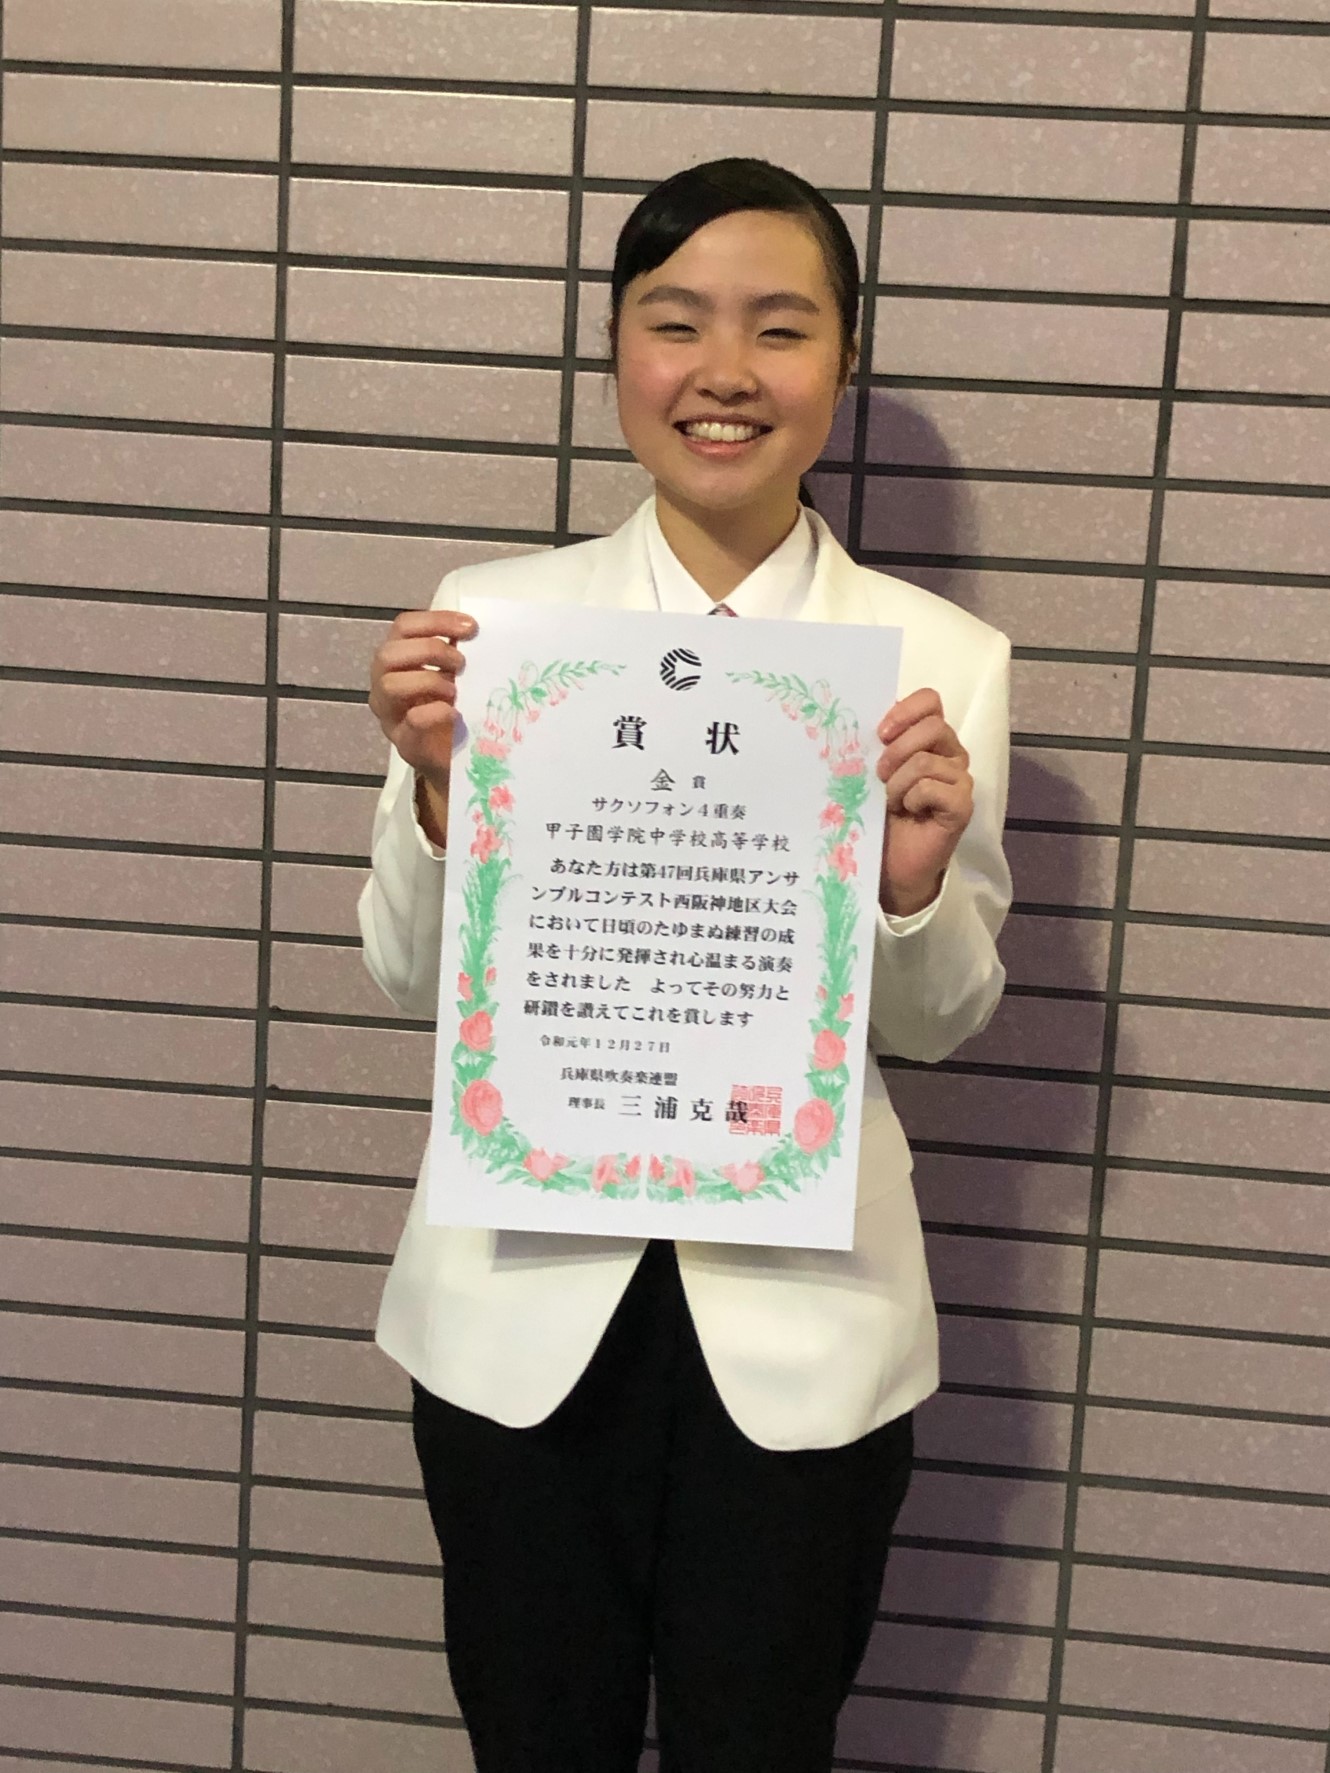 賞 状
金 賞
サクソフォン4重奏
甲子園学院中学校高等学校
あなた方は第47回兵庫県アンサ
ンブルコンテスト西阪神地区大会
において日頃のたゆまぬ練習の成
果を十分に発揮され心温まる演奏
をされました よってその努力と
研鑽を讃えてこれを賞します
令和元年12月27日
兵庫県吹奏楽連盟
理事長 三浦克哉